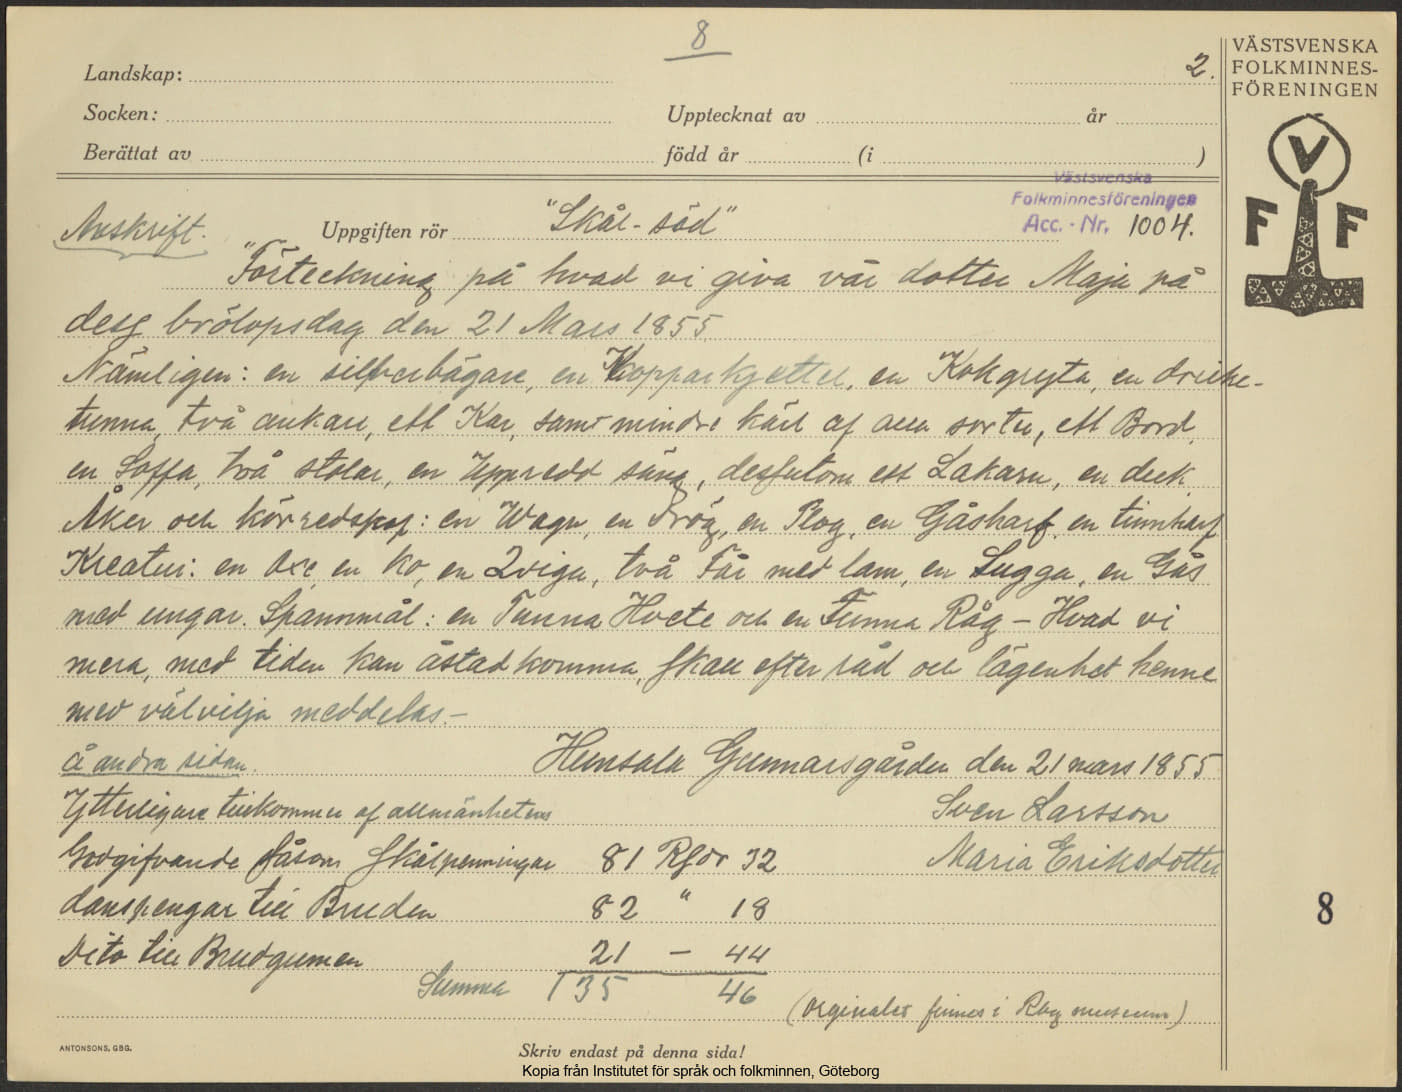 8
VÄSTSVENSKA
FOLKMINNES-
FÖRENINGEN
V
F F
Landskap:
2.
Socken: Upptecknat av år
Berättat av född år (i )
Västsvenska
Folkminnesföreningen
Acc.-Nr. 1004.
Avskrift. Uppgiften rör "Skål-söd"
"Förteckning på hvad vi giva vår dotter Maja på
dess brölopsdag den 21 Mars 1855.
Nämligen: en silfverbägare, en Kopparkjettel, en Kokgryta, en dricke-
tunna, två ankare, ett Kar, samt mindre kärl af alla sorter, ett Bord,
en Soffa, två stolar, en Uppredd säng, desfutom ett Lakarn, en deck.
Åker och körredskap: en Wagn, en Drög, en Plog, en Gåsharf, en tinnharf
Kreatur: en Oxe, en ko, en Qviga, två Får med lam, en Sugga, en Gås
med ungar. Spannmål: en Tunna Hvete och en Tunna Råg – Hvad vi
mera, med tiden kan åstadkomma, skall efter råd och lägenhet henne
med välvilja meddelas.–
å andra sidan. Hunsala Gunnarsgården den 21 mars 1855
Ytterligare tillkommer af allmänhetens Sven Larsson
Godgifvande såsom Skålpenningar 81 Rgdr 32 Maria Eriksdotter
danspengar till Bruden 82 " 18
Dito till Brudgumen 21 – 44
Summa 135 46
(Orginalet finnes i museum)
8
ANTONSONS, GBG.
Skriv endast på denna sida!
Kopia från Institutet för språk och folkminnen, Göteborg